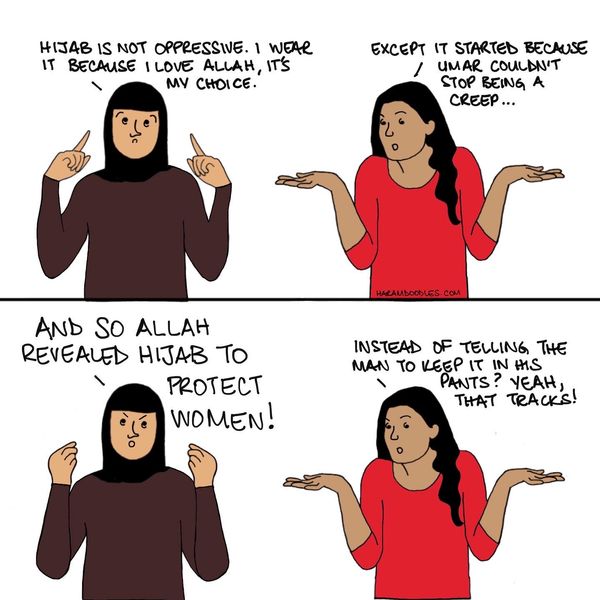 HIJAB IS NOT OPPRESSIVE. I WEAR
IT BECAUSE I LOVE ALLAH, IT'S
MY CHOICE.
EXCEPT IT STARTED BECAUSE
UMAR COULDN'T
STOP BEING A
CREEP...
HARAMDOODLES.COM
AND SO ALLAH
REVEALED HIJAB TO
PROTECT
WOMEN!
INSTEAD OF TELLING THE
MAN TO KEEP IT IN HIS
PANTS? YEAH,
THAT TRACKS!